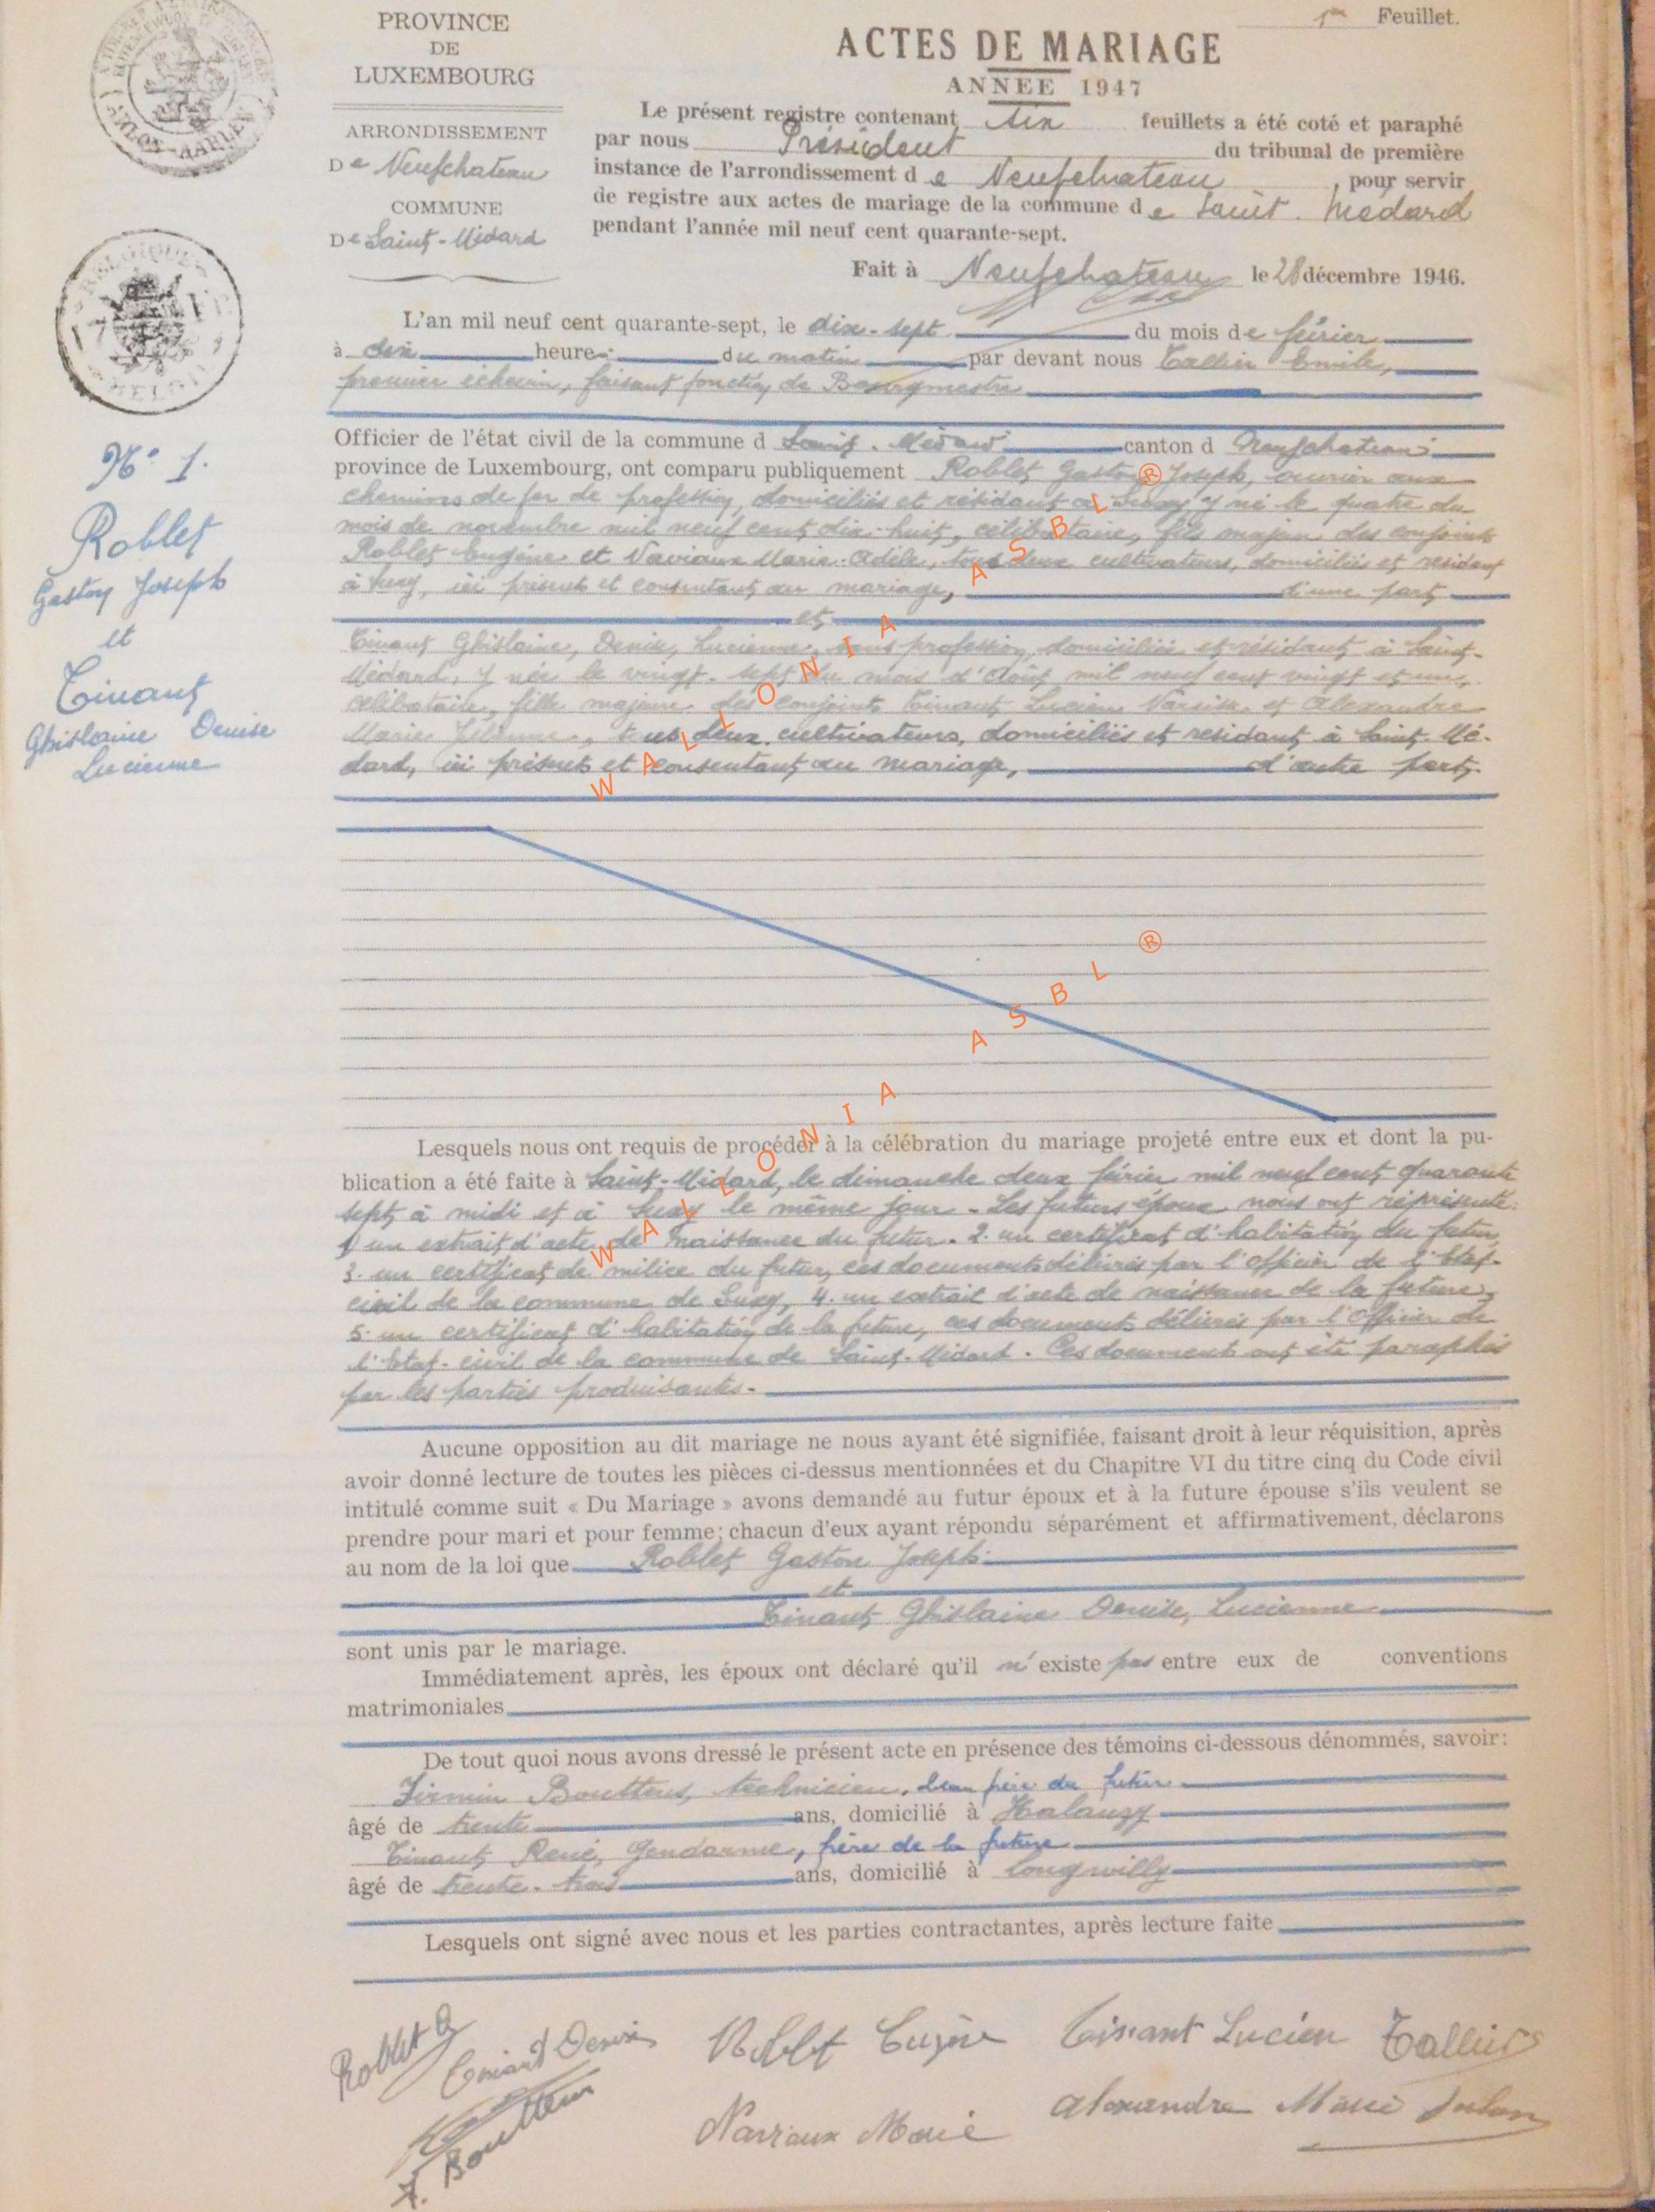 1er Feuillet.
PROVINCE
DE
LUXEMBOURG
ARRONDISSEMENT
De Neufchateau
COMMUNE
De Saint-Médard
ACTES DE MARIAGE
ANNÉE 1947
Le présent registre contenant six feuillets a été coté et paraphé
par nous Président du tribunal de première
instance de l'arrondissement de Neufchateau, pour servir
de registre aux actes de mariage de la commune de Saint-Médard
pendant l'année mil neuf cent quarante-sept.
Fait à Neufchateau le 28 décembre 1946.
N° 1.
Roblet
Gaston Joseph
et
Tinant
Ghislaine Denise
Lucienne
L'an mil neuf cent quarante-sept, le dix-sept du mois de février
à dix heures du matin par devant nous Tallier Emile,
premier échevin, faisant fonction de Bourgmestre
Officier de l'état civil de la commune d Saint-Médard canton d Neufchateau
province de Luxembourg, ont comparu publiquement Roblet Gaston Joseph, ouvrier aux
chemins de fer de profession, domiciliés et résidant à Suxy y né le quatre du
mois de novembre mil neuf cent dix-huit, célibataire, fils majeur des conjoints
Roblet Eugène et Naviaux Marie-Adèle, tous deux cultivateurs, domiciliés et résidant
à Suxy, ici présents et consentant au mariage, d'une part
et
Tinant Ghislaine, Denise, Lucienne, sans profession, domiciliée et résidant à Saint-
Médard, y née le vingt-sept du mois d'Août mil neuf cent vingt et un,
célibataire, fille majeure des conjoints Tinant Lucien Narcisse et Alexandre
Marie, tous deux cultivateurs, domiciliés et résidant à Saint-Mé-
dard, ici présents et consentant au mariage, d'autre part.
WALLONIA ASBL ®
WALLONIA ASBL ®
Lesquels nous ont requis de procéder à la célébration du mariage projeté entre eux et dont la pu-
blication a été faite à Saint-Médard, le dimanche deux février mil neuf cent quarante
sept à midi et à Suxy le même jour. Les futurs époux nous ont représenté:
1 un extrait d'acte de naissance du futur. 2. un certificat d'habitation du futur,
3. un certificat de milice du futur, ces documents délivrés par l'officier de l'Etat-
civil de la commune de Suxy, 4. un extrait d'acte de naissance de la future,
5. un certificat d'habitation de la future, ces documents délivrés par l'Officier de
l'Etat-civil de la commune de Saint-Médard. Ces documents ont été paraphés
par les parties produisantes.
Aucune opposition au dit mariage ne nous ayant été signifiée, faisant droit à leur réquisition, après
avoir donné lecture de toutes les pièces ci-dessus mentionnées et du Chapitre VI du titre cinq du Code civil
intitulé comme suit « Du Mariage » avons demandé au futur époux et à la future épouse s'ils veulent se
prendre pour mari et pour femme; chacun d'eux ayant répondu séparément et affirmativement, déclarons
au nom de la loi que Roblet Gaston Joseph
et
Tinant Ghislaine Denise, Lucienne
sont unis par le mariage.
Immédiatement après, les époux ont déclaré qu'il n'existe pas entre eux de conventions
matrimoniales
De tout quoi nous avons dressé le présent acte en présence des témoins ci-dessous dénommés, savoir:
Firmin Bouttens, technicien, beau frère du futur
âgé de trente ans, domicilié à Halanzy
Tinant René, Gendarme, frère de la future
âgé de trente-trois ans, domicilié à Longwilly
Lesquels ont signé avec nous et les parties contractantes, après lecture faite
Roblet G
Tinant Denise
Roblet Eugène
Tinant Lucien
Tallier
Naviaux Marie
Alexandre Marie